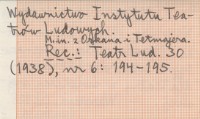 Wydawnictwo Instytutu Tea-
trów Ludowych.
M.in. z Orkana i Tetmajera.
Rec.: Teatr Lud. 30
(1938), nr 6: 194-195.